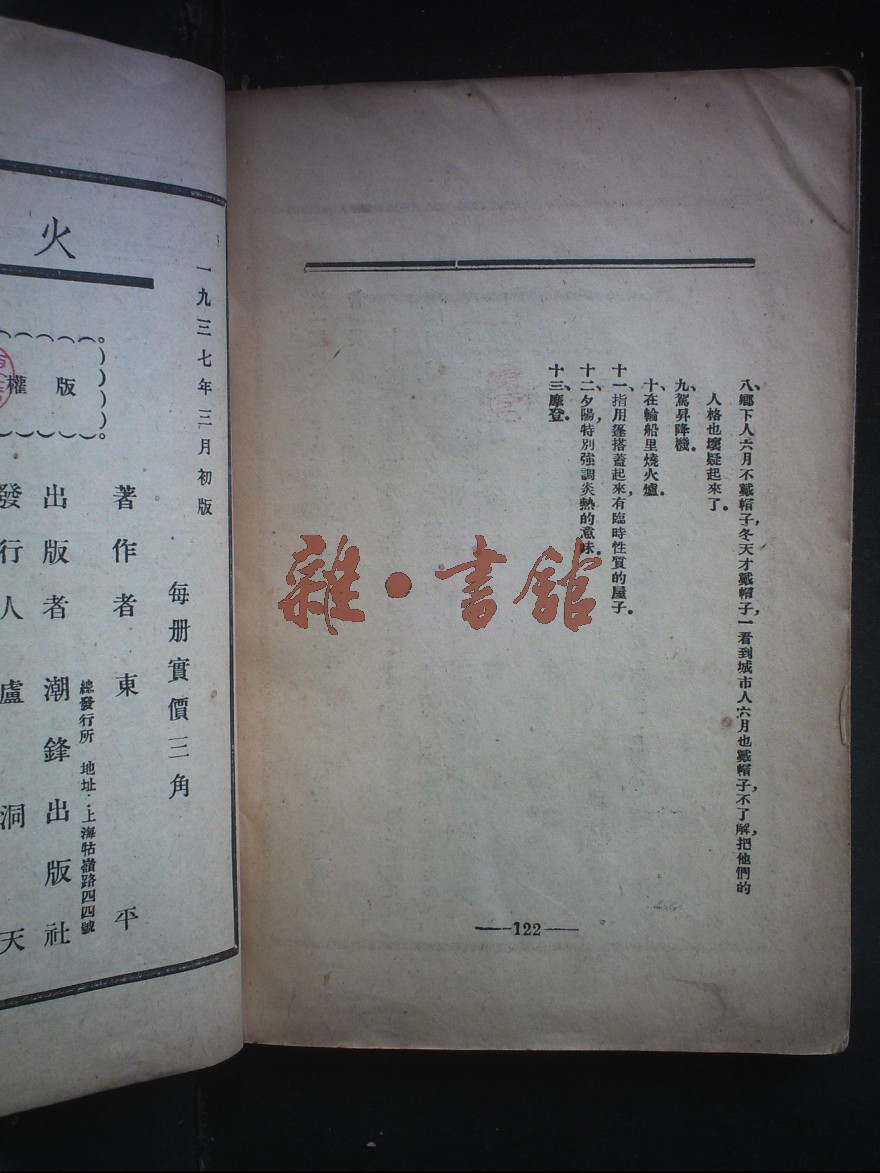 八、鄉下人六月不戴帽子，冬天才戴帽子，一看到城市人六月也戴帽子，不了解，把他們的
人格也壞疑起來了。
九、駕昇降機。
十、在輪船里燒火爐。
十一、指用篷搭蓋起來，有臨時性質的屋子。
十二、夕陽，特別強調炎熱的意味。
十三、摩登。
—122—
雜·書館
一九三七年三月初版
每册實價三角
著作者東平
總發行所 地址：上海牯嶺路四四號
出版者潮鋒出版社
發行人盧洞天
版權
火